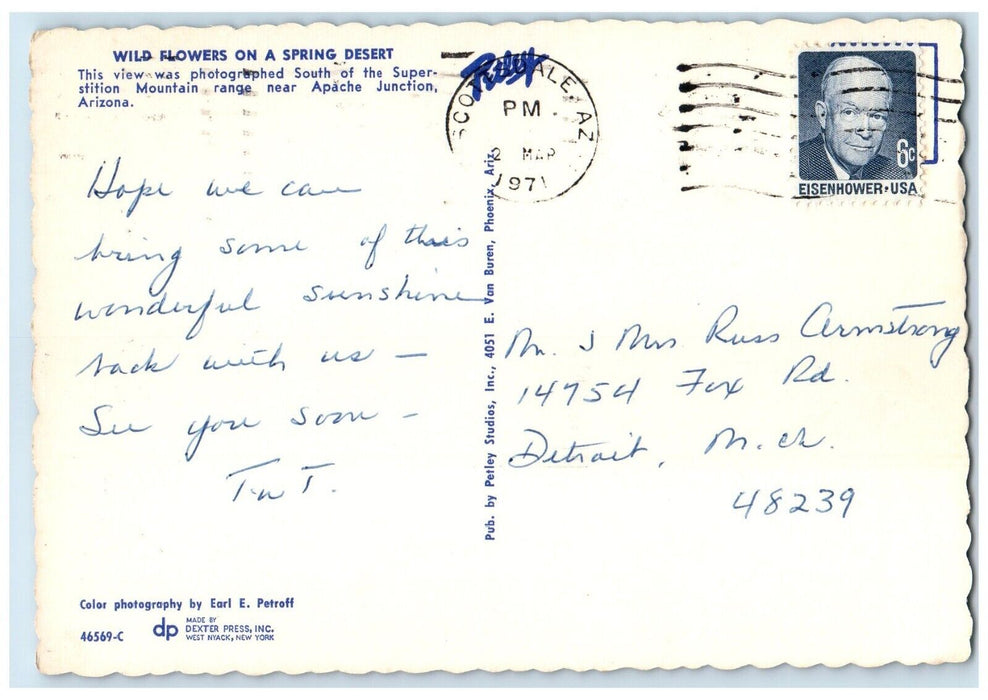 WILD FLOWERS ON A SPRING DESERT
This view was photographed South of the Super-
stition Mountain range near Apache Junction,
Arizona.
Hope we can
bring some of this
wonderful sunshine
back with us —
See you soon —
T n T.
Color photography by Earl E. Petroff
46569-C
dp
MADE BY
DEXTER PRESS, INC.
WEST NYACK, NEW YORK
Pub. by Petley Studios, Inc., 4051 E. Van Buren, Phoenix, Ariz.
Petley
SCOTTSDALE, AZ
PM
2 MAR
1971
6c
EISENHOWER·USA
Mr. & Mrs Russ Armstrong
14754 Fox Rd.
Detroit, Mich.
48239